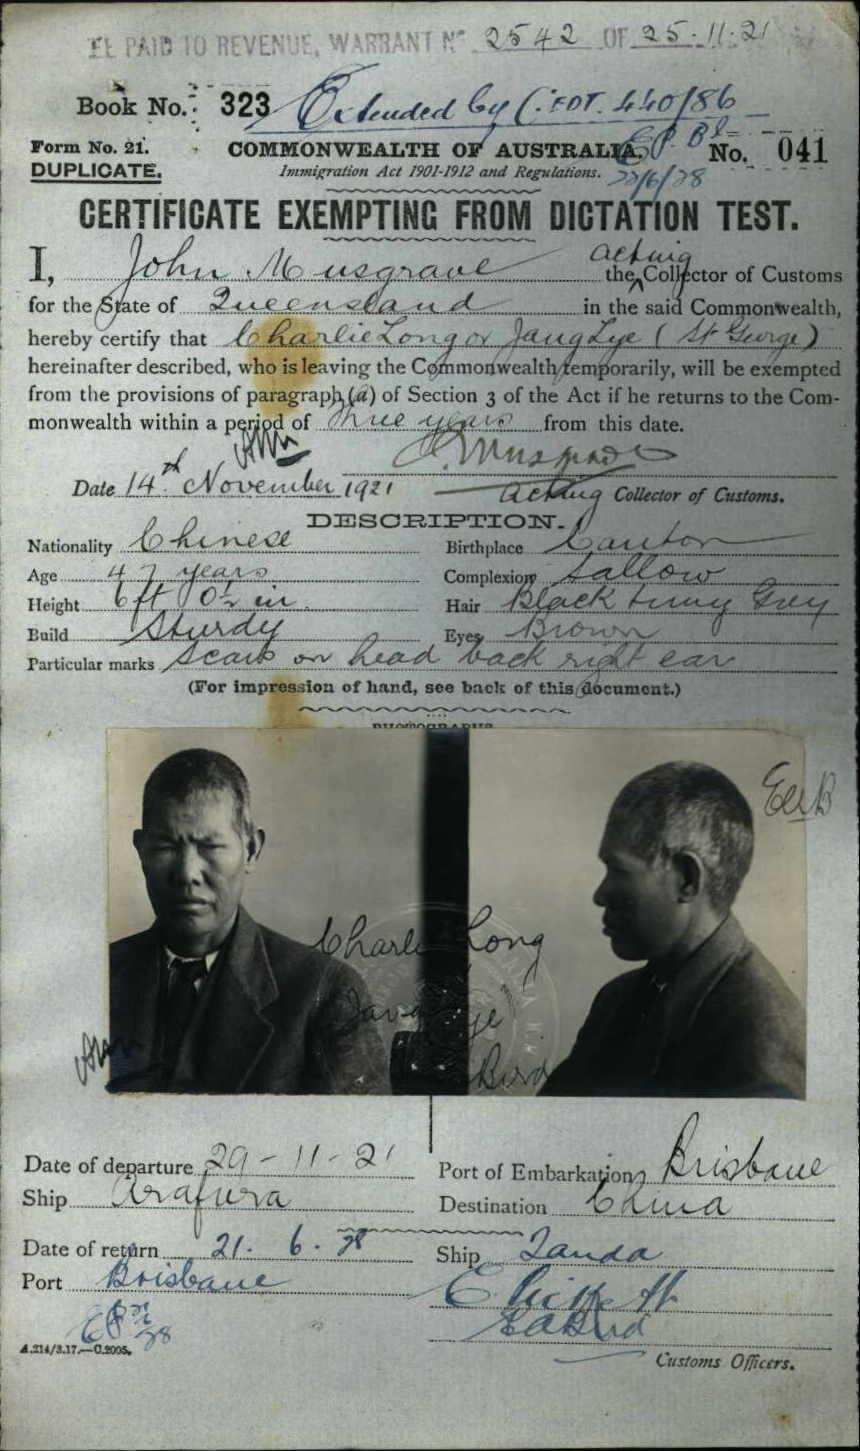 PAID TO REVENUE, WARRANT No 2542 OF 25-11-21
Book No. 323 Extended by C. 440/86
Form No. 21. COMMONWEALTH OF AUSTRALIA. No. 041
DUPLICATE. Immigration Act 1901-1912 and Regulations. 22/6/28
CERTIFICATE EXEMPTING FROM DICTATION TEST.
I, John Musgrave the acting Collector of Customs
for the State of Queensland in the said Commonwealth,
hereby certify that Charlie Long or Jang Lye (St George)
hereinafter described, who is leaving the Commonwealth temporarily, will be exempted
from the provisions of paragraph (a) of Section 3 of the Act if he returns to the Com-
monwealth within a period of three years from this date.
J. Musgrave
Date 14th November 1921 acting Collector of Customs.
DESCRIPTION.
Nationality Chinese Birthplace Canton
Age 47 years Complexion Sallow
Height 6 ft 0½ in. Hair Black turning Grey
Build Sturdy Eyes Brown
Particular marks Scars on head back right ear
(For impression of hand, see back of this document.)
PHOTOGRAPHS
Charlie Long
Date of departure 29-11-21 Port of Embarkation Brisbane
Ship Arafura Destination China
Date of return 21.6.28 Ship Tanda
Port Brisbane
A.214/3.17.—C.2005.
Customs Officers.